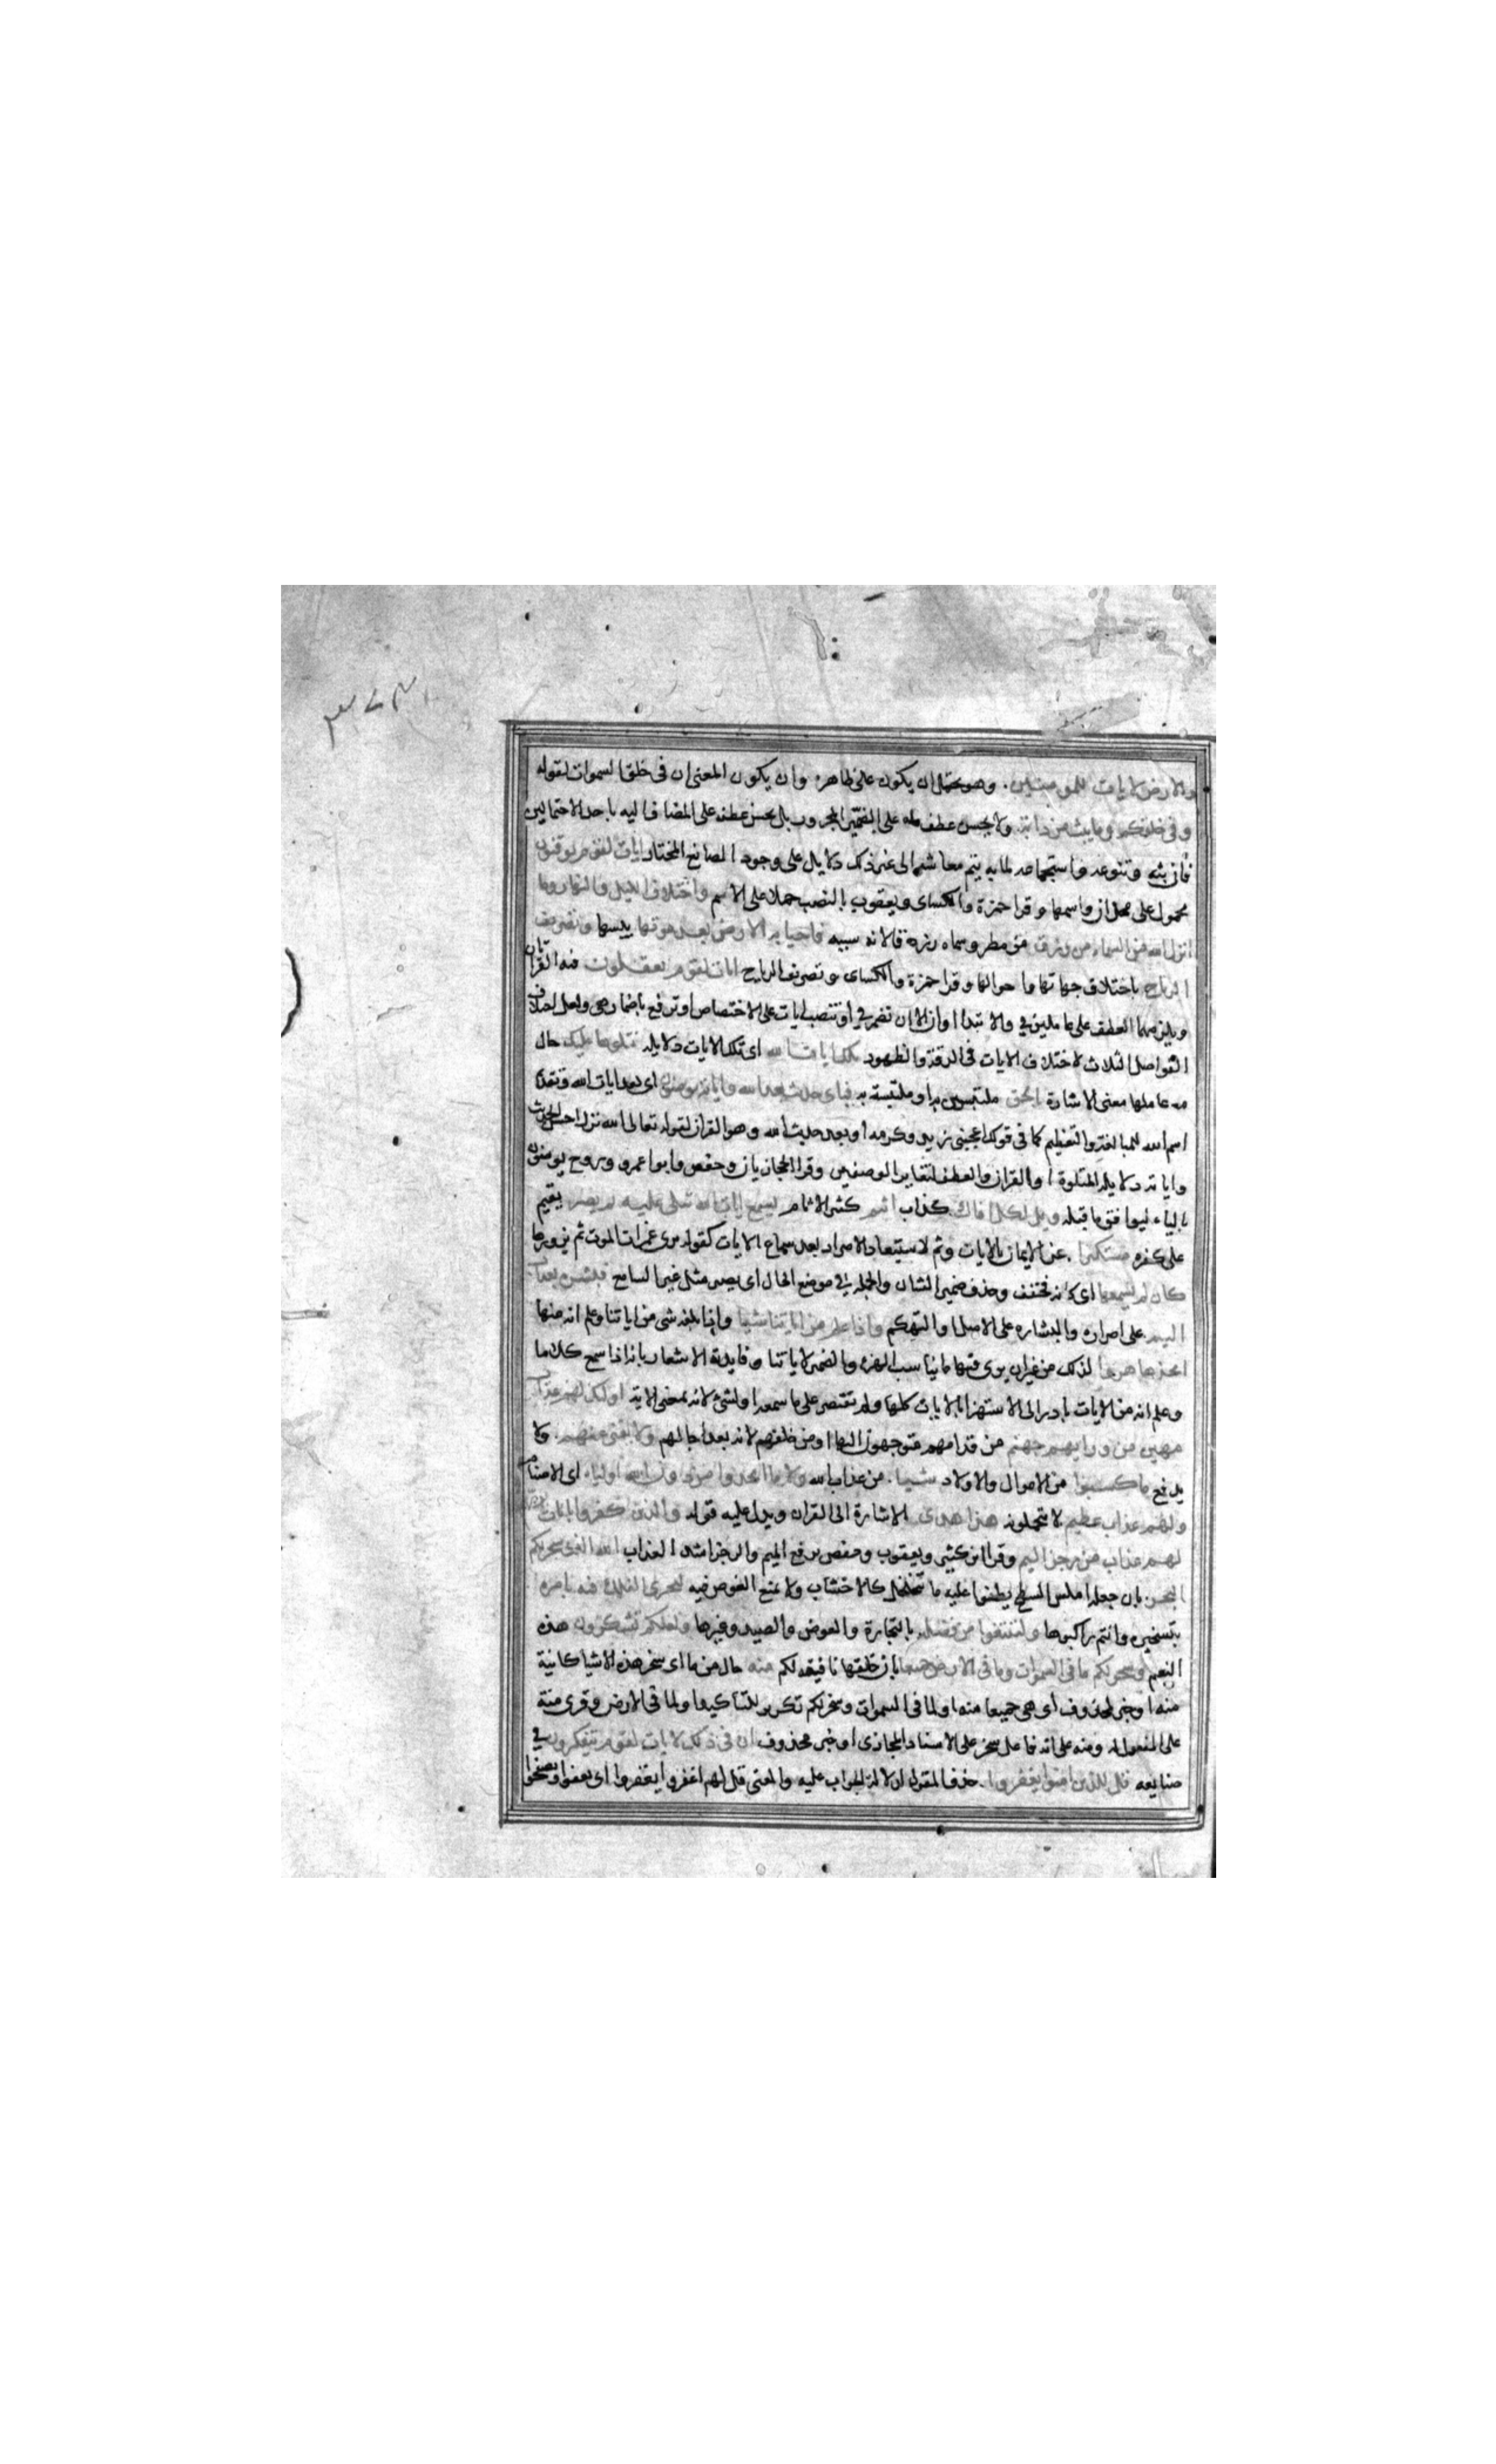 والارض لايات للمومنين. وهو يحتمل ان يكون على ظاهره وان يكون المعنى ان فى خلق السموات لقوله
وفى خلقكم وما يبث من دابة. ولا يحسن عطف ما على الضمير المجرور بل يحسن عطفه على المضاف اليه باحد الاحتمالين
فان بثه وتنوعه واستجماعه لما به يتم معاشه الى غير ذلك دلايل على وجود الصانع المختار ايات لقوم يوقنون
محمول على محل ان واسمها وقرا حمزة والكساى ويعقوب بالنصب حملا على الاسم واختلاف الليل والنهار وما
انزل الله من السماء من رزق من مطر وسماه رزقا لانه سببه فاحيا به الارض بعد موتها يبسها وتصريف
الرياح باختلاف جهاتها واحوالها وقرا حمزة والكساى وتصريف الرياح ايات لقوم يعقلون فيه القراتان
ويلزمهما العطف على عاملين فى والابتدا او ان الا ان تضمر فى او تنصب ايات على الاختصاص او ترفع باضمار هى ولعل اختلاف
الفواصل الثلاث لاختلاف الايات فى الدقة والظهور تلك ايات الله اى تلك الايات دلايله نتلوها عليك حال
عاملها معنى الاشارة بالحق ملتبسين به او ملتبسة به فباى حديث بعد الله واياته يومنون اى بعد ايات الله وتقديم
اسم الله للمبالغة والتعظيم كما فى قولك اعجبنى زيد وكرمه او بعد حديث الله وهو القران لقوله تعالى الله نزل احسن الحديث
واياته دلايله المتلوة او القران والعطف لتغاير الوصفين وقرا الحجازيان وحفص وابو عمرو وروح يومنون
بالياء ليوافق ما قبله ويل لكل افاك كذاب اثيم كثير الاثام يسمع ايات الله تتلى عليه ثم يصر يقيم
على كفره مستكبرا. عن الايمان بالايات وثم لاستبعاد الاصرار بعد سماع الايات كقوله يرى غمرات الموت ثم يزورها
كان لم يسمعها اى كانه فخفف وحذف ضمير الشان والجملة فى موضع الحال اى يصر مثل غير السامع فبشره بعذاب
اليم. على اصراره والبشارة على الاصل او التهكم واذا علم من اياتنا شيا واذا بلغه شى من اياتنا وعلم انه منها
اتخذها هزوا لذلك من غير ان يرى فيها ما يناسب الهزء والضمير لاياتنا وفايدته الاشعار بانه اذا سمع كلاما
وعلم انه من الايات بادر الى الاستهزا بالايات كلها ولم يقتصر على ما سمعه او لشئ لانه بمعنى الاية اوليك لهم عذاب
مهين من ورايهم جهنم من قدامهم متوجهون اليها او من خلفهم لانه بعد اجالهم ولا يغنى عنهم. ولا
يدفع ما كسبوا من الاموال والاولاد شيا. من عذاب الله ولا ما اتخذوا من دون الله اولياء اى الاصنام
ولهم عذاب عظيم لا يتحملونه هذا هدى الاشارة الى القران ويدل عليه قوله والذين كفروا بايات ربهم
لهم عذاب من رجز اليم وقرا ابن كثير ويعقوب وحفص برفع اليم والرجز اشد العذاب الله الذى سخر لكم
البحر. بان جعله املس السطح يطفوا عليه ما يتخلخل كالاخشاب ولا يمنع الغوص فيه لتجرى الفلك فيه بامره
بتسخيره وانتم راكبوها ولتبتغوا من فضله. بالتجارة والغوص والصيد وغيرها ولعلكم تشكرون هذه
النعم وسخر لكم ما فى السموات وما فى الارض جميعا بان خلقها نافعة لكم منه حال من ما اى سخر هذه الاشيا كاينة
منه او خبر لمحذوف اى هى جميعا منه او لما فى السموات وسخر لكم تكرير للتاكيد او لما فى الارض وقرى منة
على المفعول له ومنه على انه فاعل سخر على الاسناد المجازى او خبر محذوف ان فى ذلك لايات لقوم يتفكرون فى
صنايعه قل للذين امنوا يغفروا. حذف المقول لدلالة الجواب عليه والمعنى قل لهم اغفروا يغفروا اى يعفوا ويصفحوا